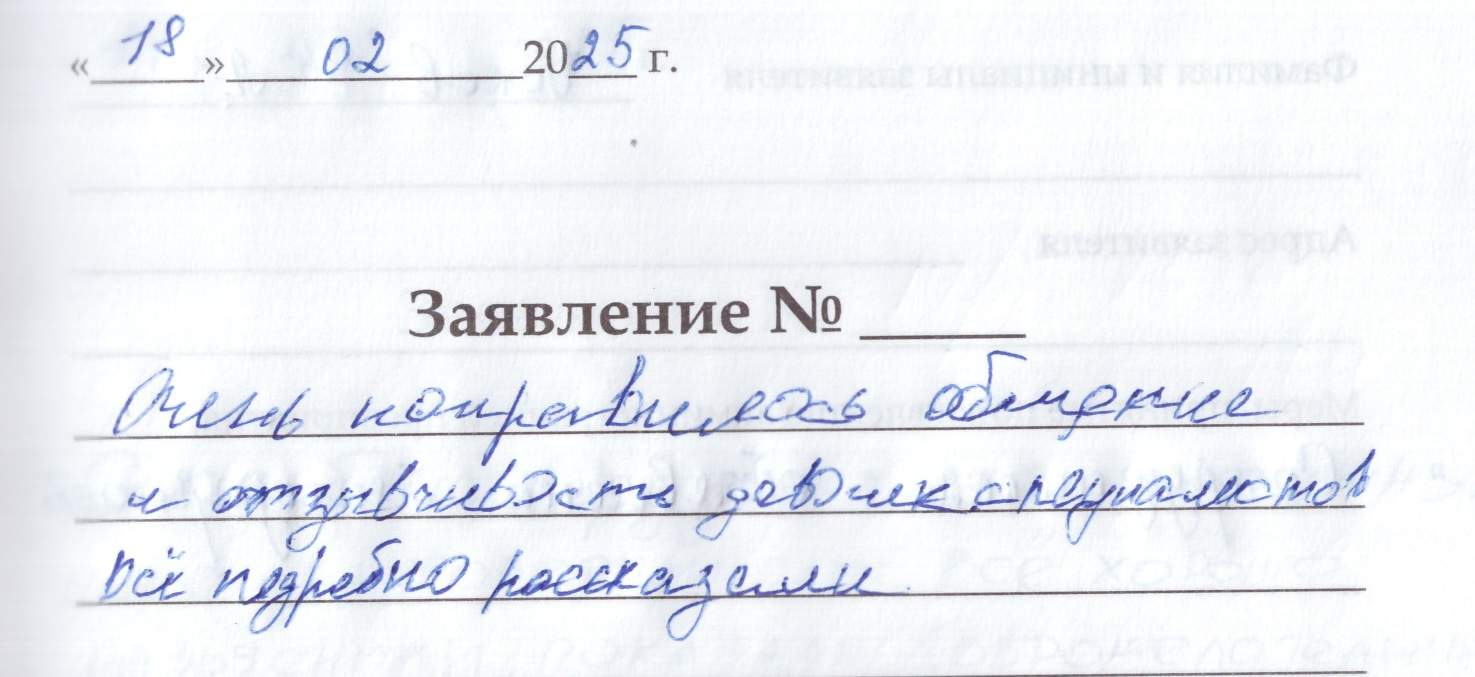 « 18 » 02 2025 г.
Заявление № ______
Очень понравилось общение
и отзывчивость девочек специалистов
Всё подробно рассказали